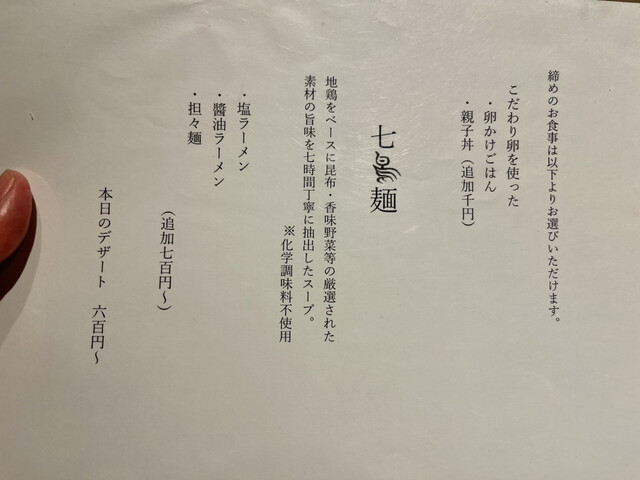 締めのお食事は以下よりお選びいただけます。
こだわり卵を使った
・卵かけごはん
・親子丼（追加千円）
七鳥麺
地鶏をベースに昆布・香味野菜等の厳選された
素材の旨味を七時間丁寧に抽出したスープ。
※化学調味料不使用
・塩ラーメン
・醬油ラーメン
・担々麺
（追加七百円〜）
本日のデザート　六百円〜